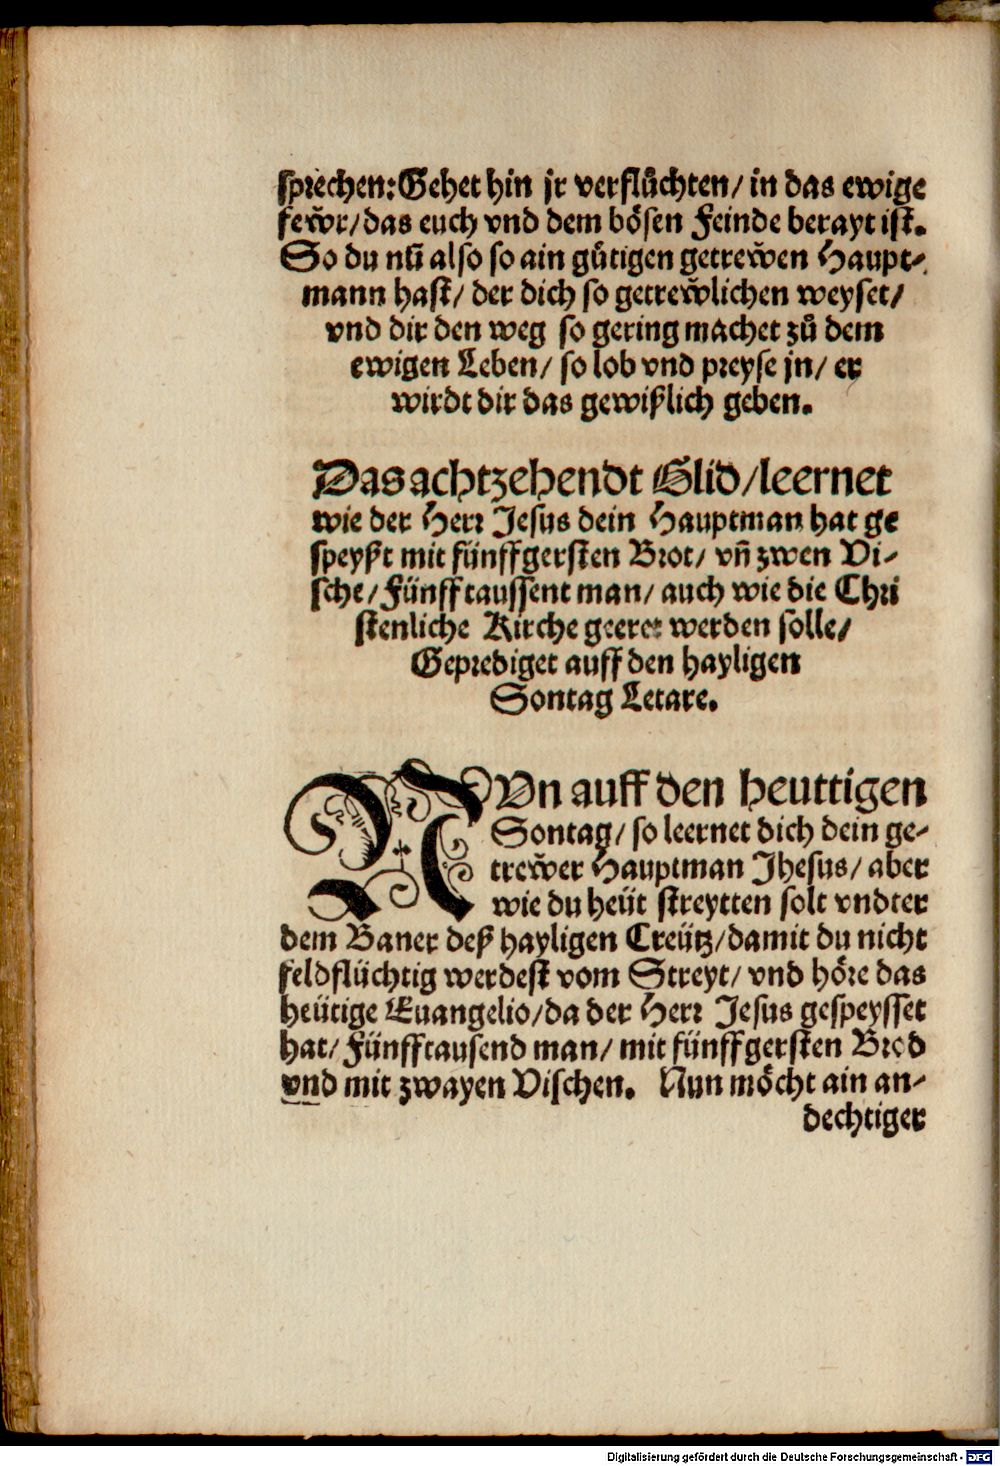 sprechen: Gehet hin jr verflůchten/ in das ewige
fewͤr/ das euch vnd dem bösen Feinde berayt ist.
So du nũ also so ain gůtigen getrewͤen Haupt-
mann hast/ der dich so getrewͤlichen weyset/
vnd dir den weg so gering machet zů dem
ewigen Leben/ so lob vnd preyse jn/ er
wirdt dir das gewißlich geben.
Das achtzehendt Glid/ leernet
wie der Herr Jesus dein Hauptman hat ge
speyßt mit fünff gersten Brot/ vñ zwen Vi-
sche/ Fünff taussent man/ auch wie die Chri
stenliche Kirche geeret werden solle/
Geprediget auff den hayligen
Sontag Letare.
NVn auff den heuttigen
Sontag/ so leernet dich dein ge-
trewͤer Hauptman Jhesus/ aber
wie du heüt streytten solt vndter
dem Baner deß hayligen Creütz/ damit du nicht
feldflüchtig werdest vom Streyt/ vnd höre das
heütige Euangelio/ da der Herr Jesus gespeysset
hat/ Fünff tausend man/ mit fünff gersten Brod
vnd mit zwayen Vischen. Nun möcht ain an-
dechtiger
Digitalisierung gefördert durch die Deutsche Forschungsgemeinschaft - DFG